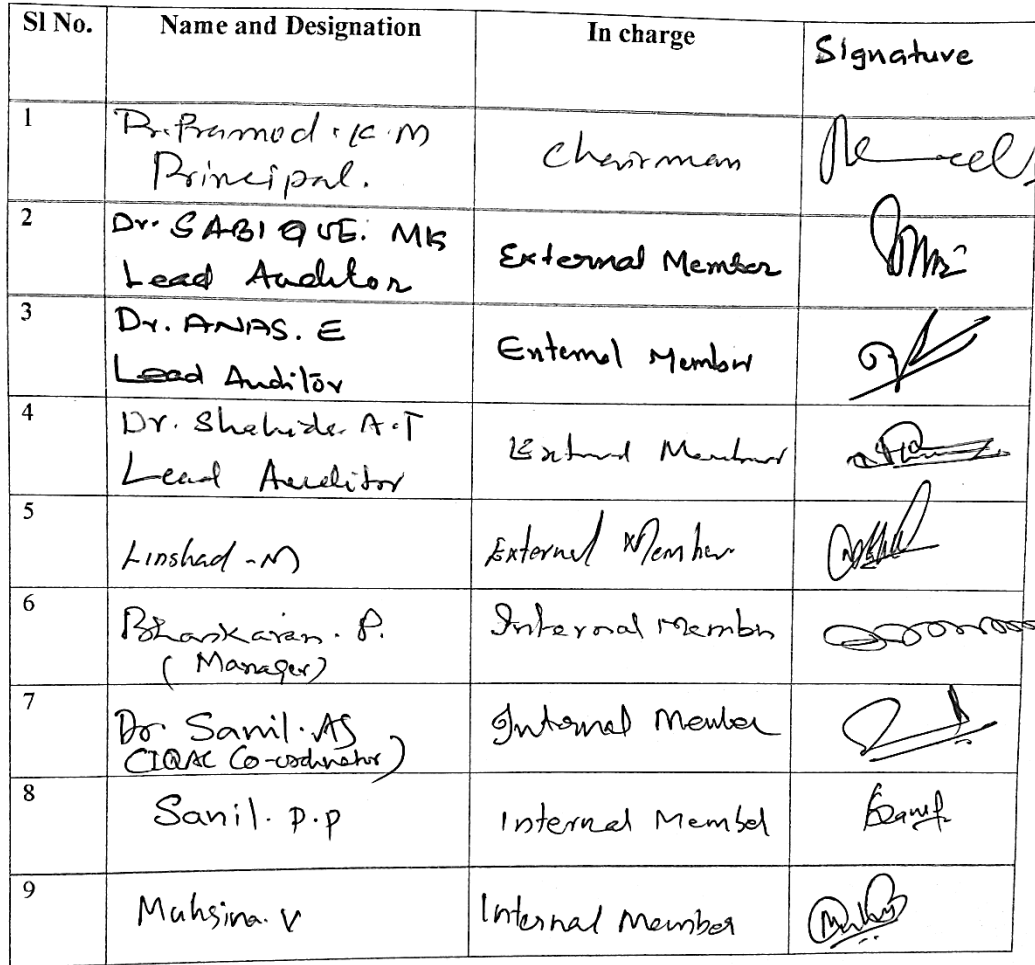 Sl No. Name and Designation In charge Signature
1 Dr. Pramod . K . M
Principal. Chairman
2 Dr. SABIQUE. MK
Lead Auditor External Member
3 Dr. ANAS. E
Lead Auditor External Member
4 Dr. Shahida A.T
Lead Auditor External Member
5 Linshad - M External Member
6 Bhaskaran. P.
(Manager) Internal Member
7 Dr. Sanil. AS
CIQAC Co-ordinator) Internal Member
8 Sanil. P.P Internal Member
9 Muhsina. V Internal Member